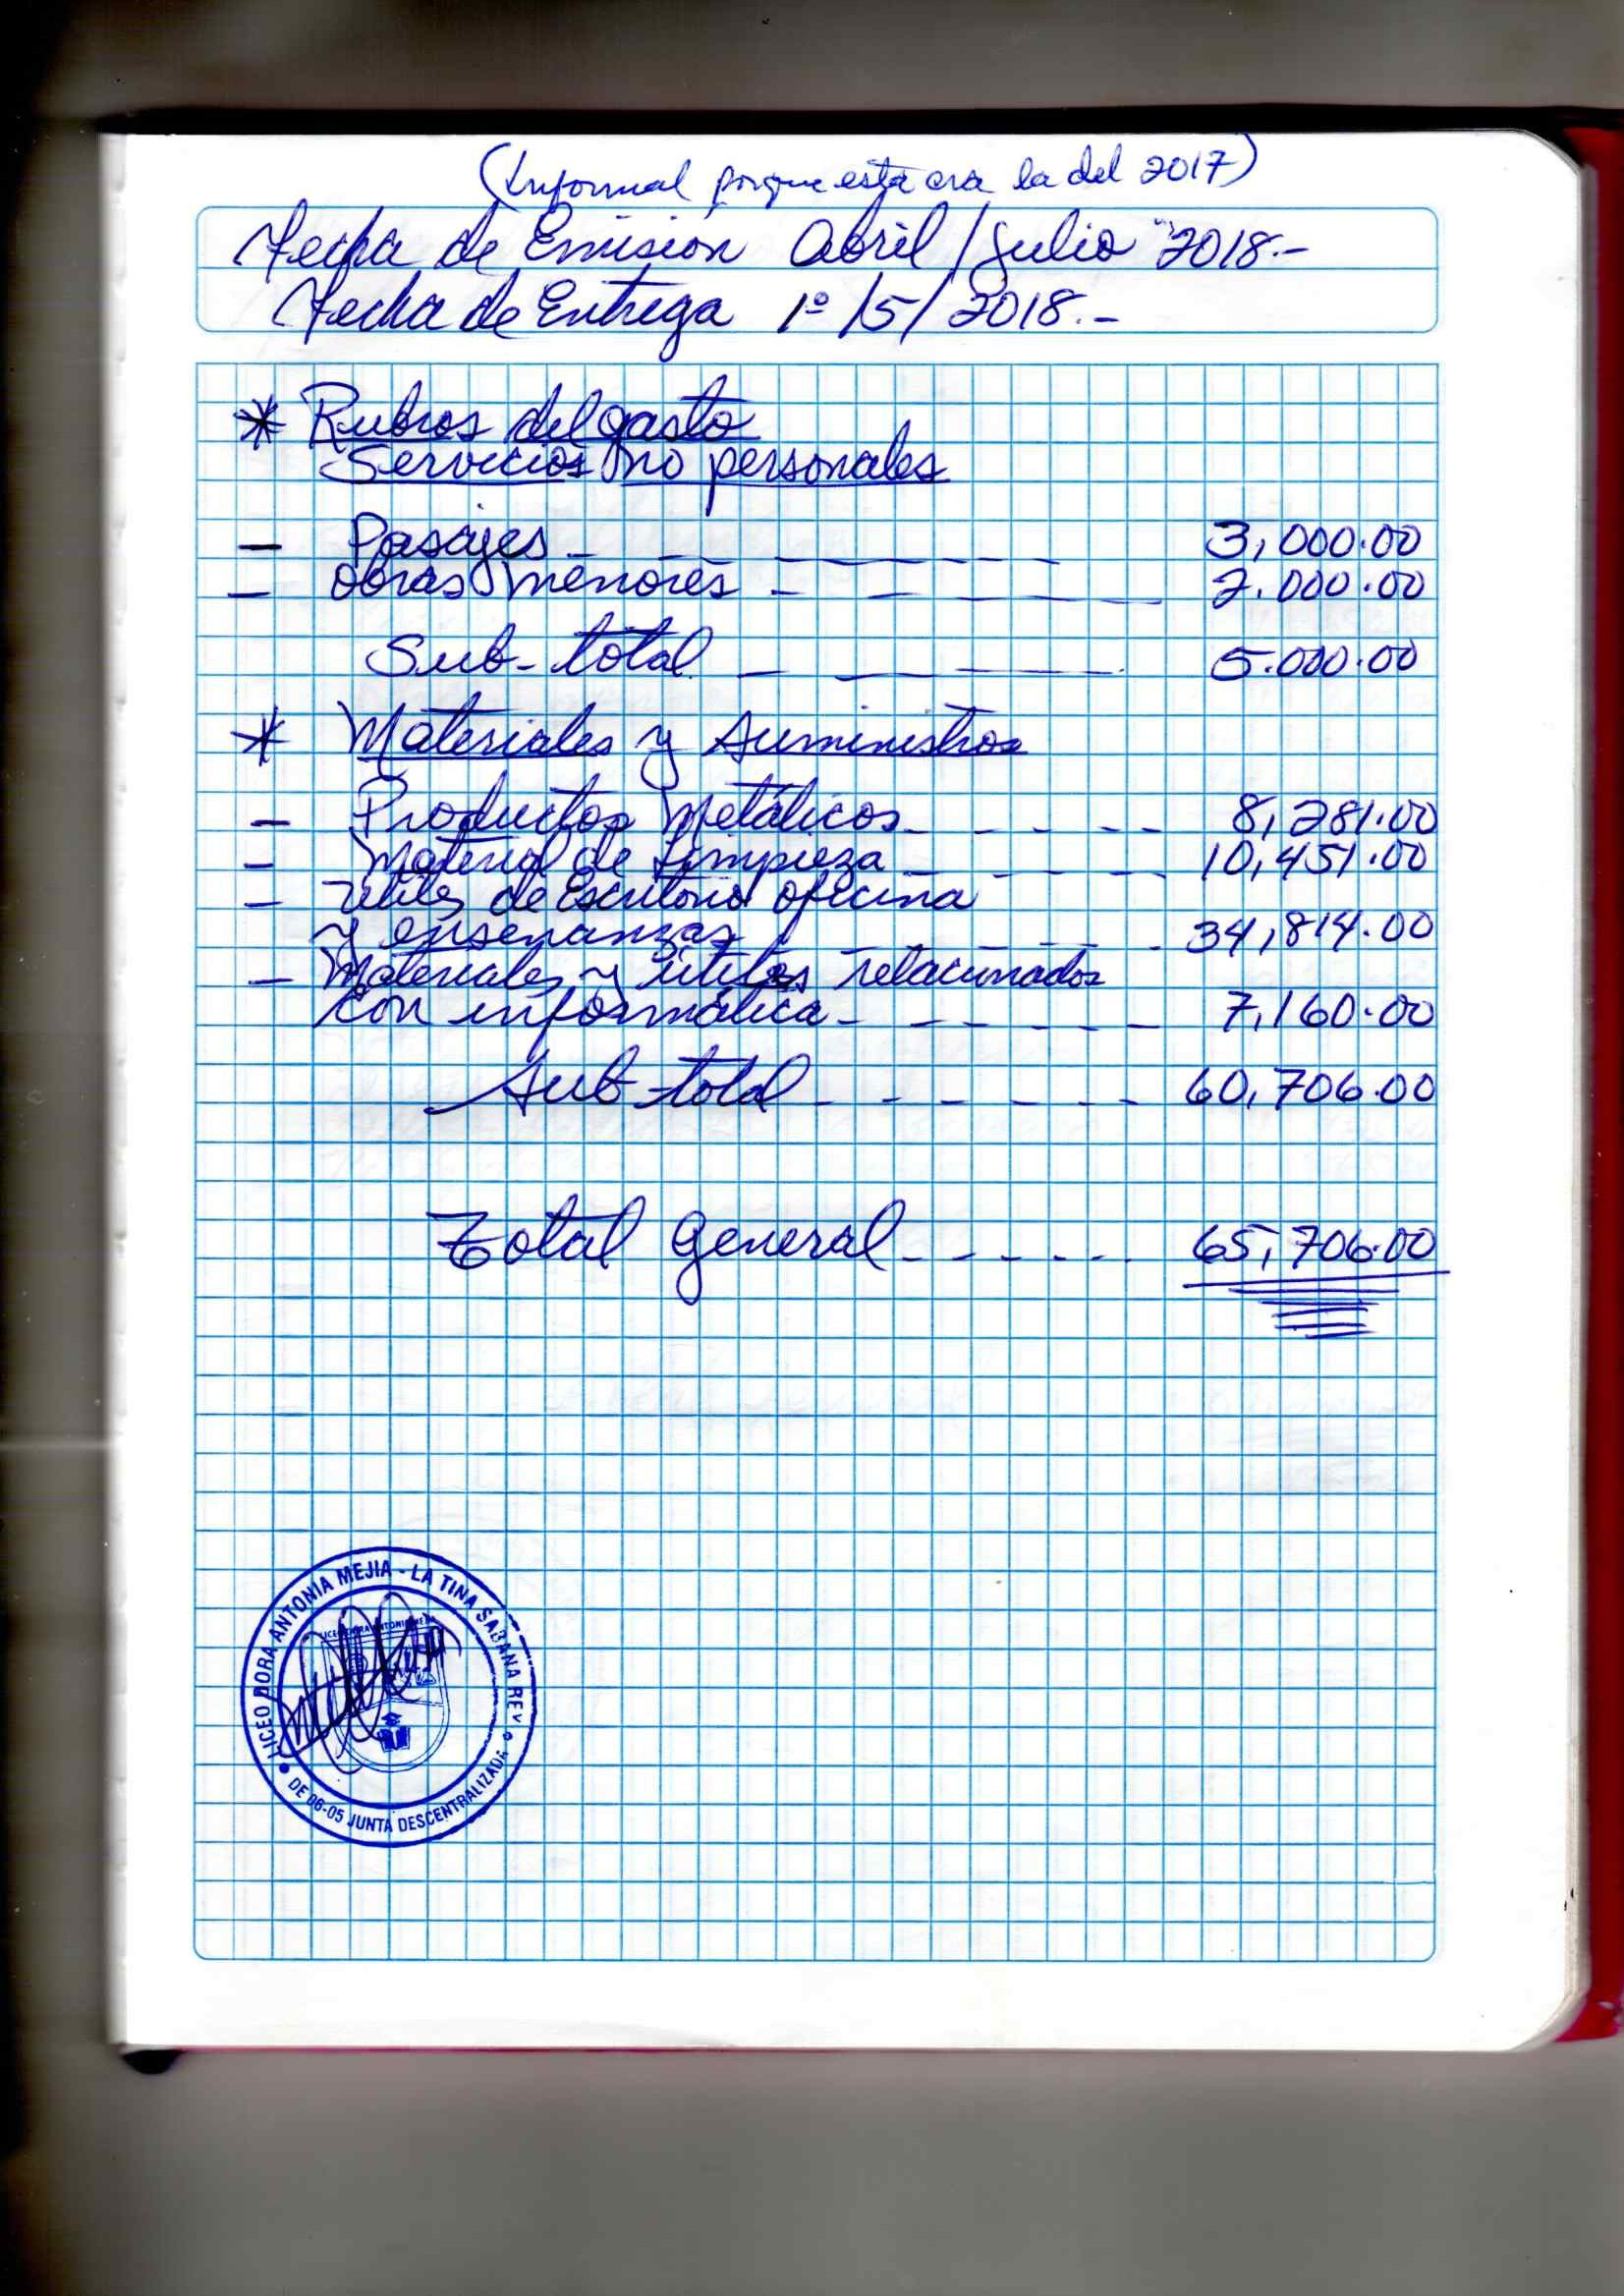 (Informal porque esta era la del 2017)
Fecha de Emisión Abril/Julio 2018.-
Fecha de Entrega 1º/5/2018.-
* Rubros del gasto
Servicios no personales
- Pasajes 3,000.00
- Obras menores 2.000.00
Sub-total 5.000.00
* Materiales y Suministros
- Productos Metálicos 8,281.00
- Material de Limpieza 10,451.00
- Utiles de Escritorio oficina
y enseñanzas 34,814.00
- Materiales y útiles relacionados
con informática 7,160.00
Sub-total 60,706.00
Total General 65,706.00
LICEO DORA ANTONIA MEJIA - LA TINA SABANA REY
DE 06-05 JUNTA DESCENTRALIZADA